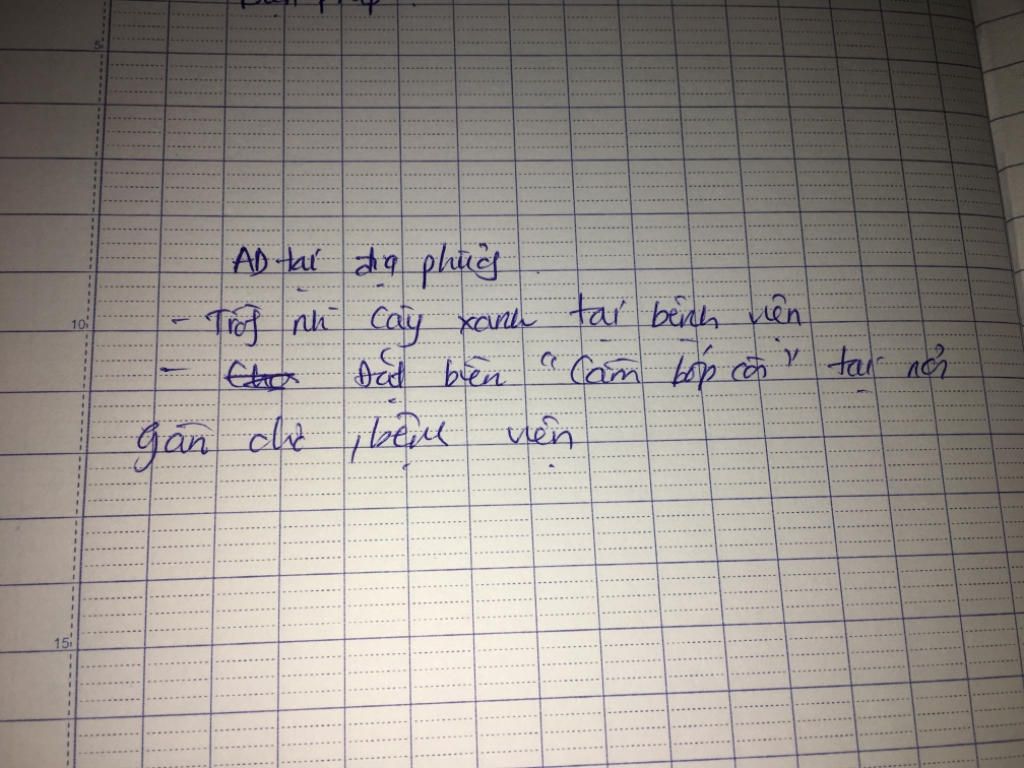 Biện pháp :
5
AD tại địa phương
10 - Trồng nh` cây xanh tại bệnh viện
- Đặt biển "Cấm bóp còi" tại nơi
gần chợ, bệnh viện
15